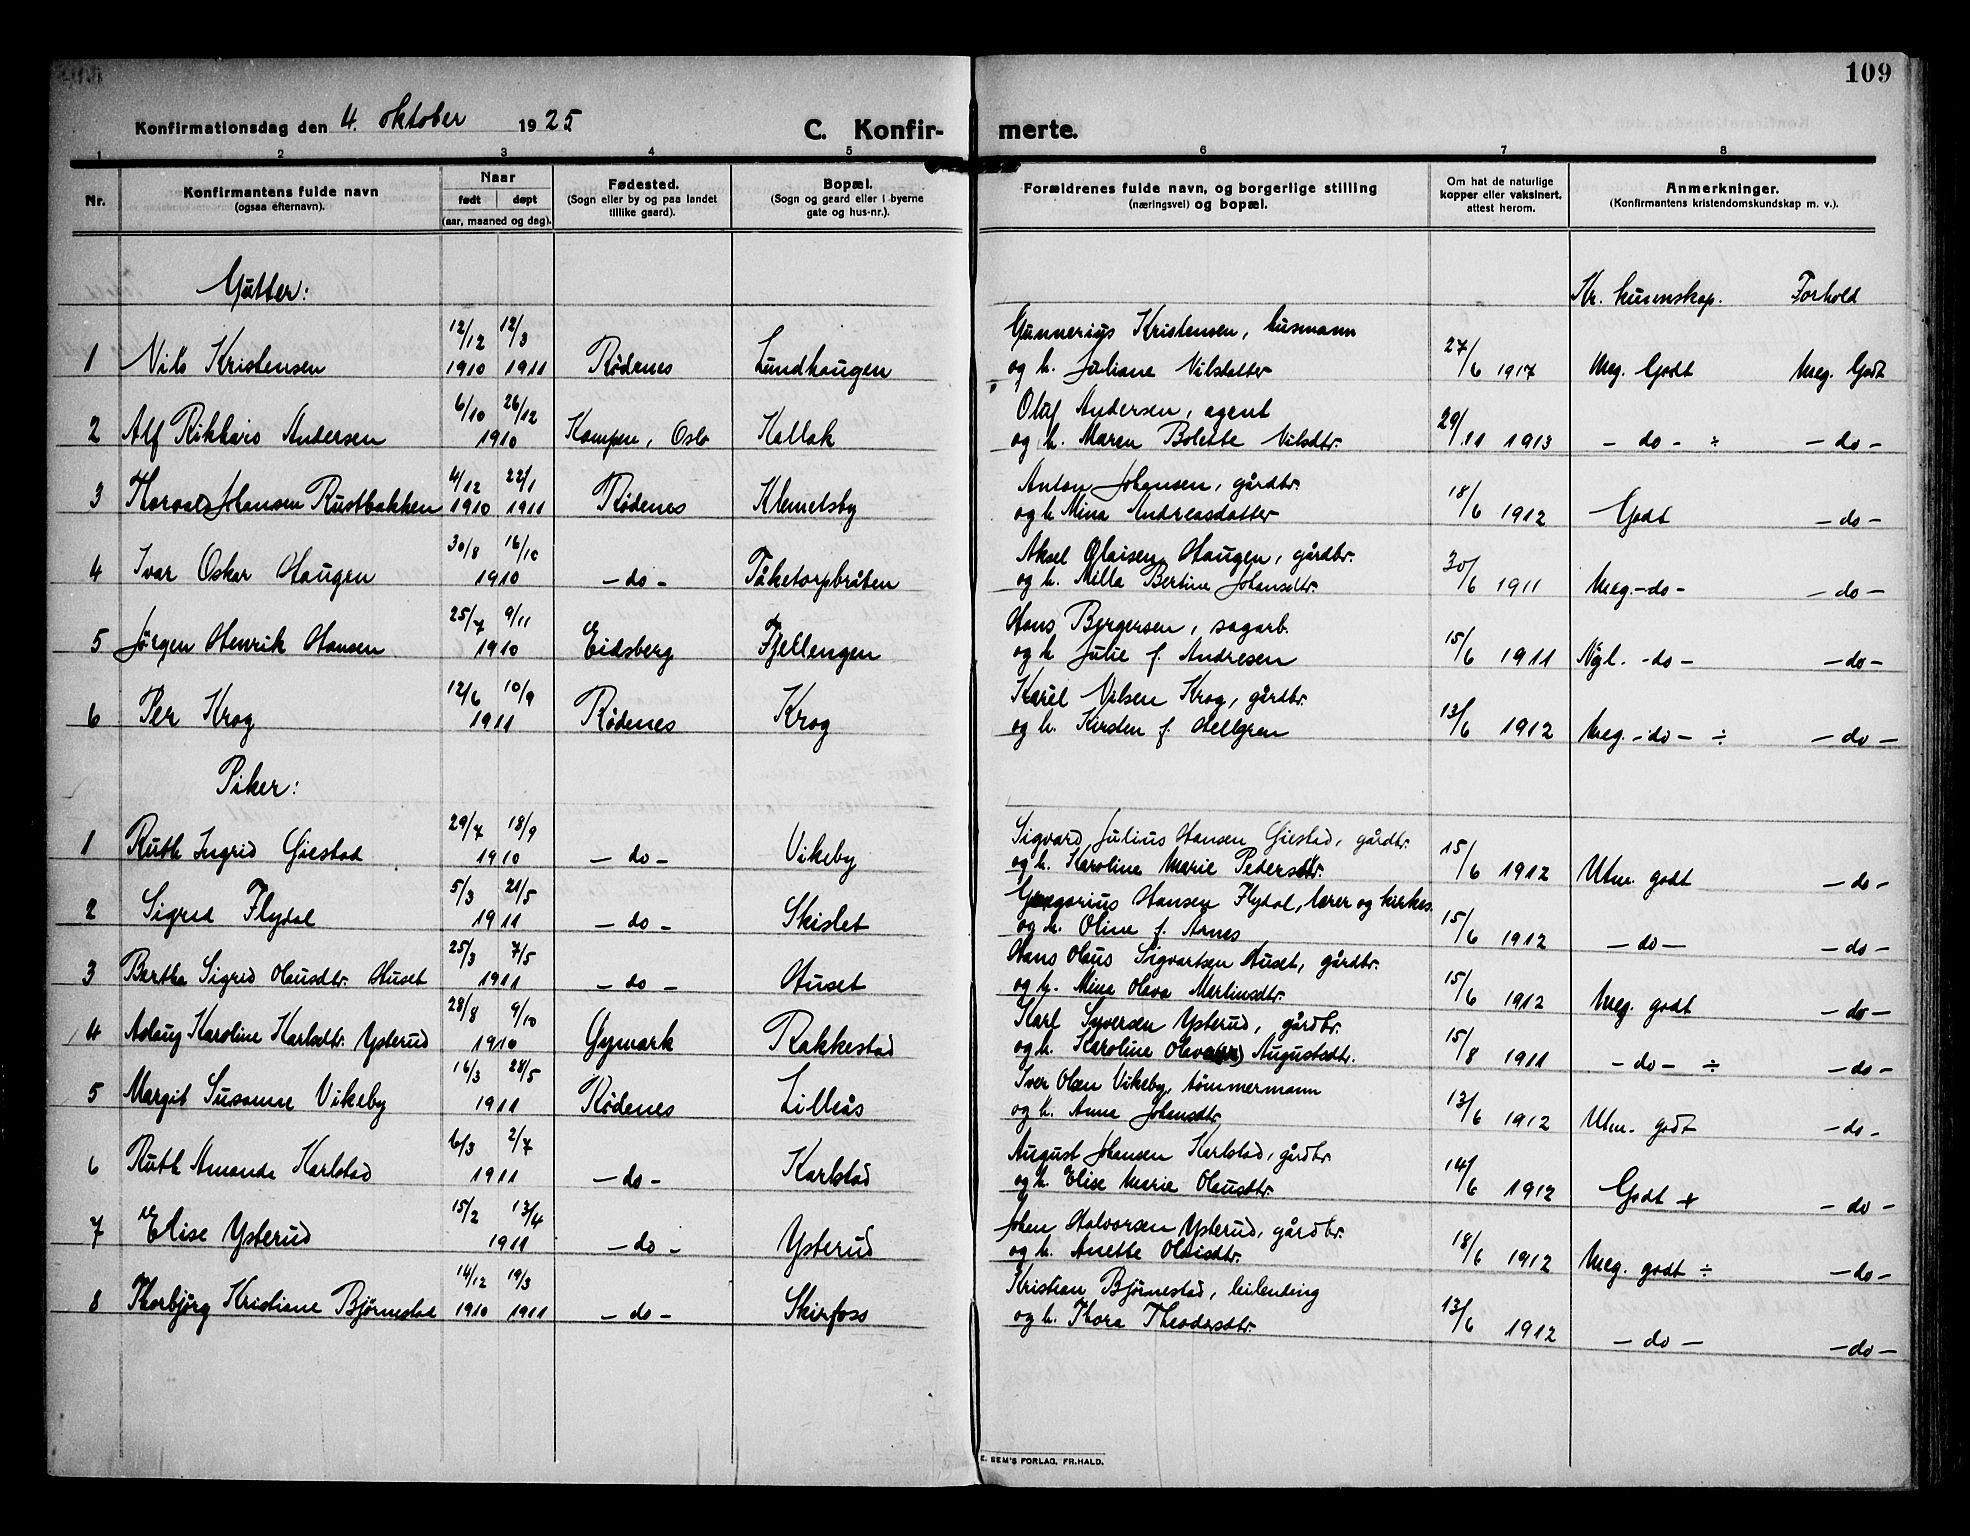 109
Konfirmationsdag den 4. oktober 1925
C. Konfir- merte.
1 2 3 4 5 6 7 8
Nr.
Konfirmantens fulde navn
(ogsaa efternavn).
Naar
født døpt
(aar, maaned og dag).
Fødested.
(Sogn eller by og paa landet
tillike gaard).
Bopæl.
(Sogn og gaard eller i byerne
gate og hus-nr.).
Forældrenes fulde navn, og borgerlige stilling
(næringsvei) og bopæl.
Om hat de naturlige
kopper eller vaksinert,
attest herom.
Anmerkninger.
(Konfirmantens kristendomskundskap m. v.).
Gutter: Kr. kunnskap. Forhold
12/12 12/3 Gunnerius Kristensen, husmann
1 Nils Kristensen 1910 1911 Rødenes Lundhaugen og h. Juliane Nilsdatter 27/6 1917 Meg. Godt Meg. Godt
6/10 26/12 Oluf Andersen, agent
2 Alf Rikhard Andersen 1910 Kampen, Oslo Kallak og h. Maren Bolette Nilsdtr. 29/11 1913 - do - ÷ - do -
4/12 22/1 Anton Johansen, gårdbr.
3 Thorvald Johansen Rustbakken 1910 1911 Rødenes Klemetsby og h Mina Andreasdatter 18/6 1912 Godt - do -
30/8 16/10 Aksel Olaisen Haugen, gårdbr.
4 Ivar Oskar Haugen 1910 - do - Tåketorpbråten og h. Milla Bertine Johansdtr. 30/6 1911 Meg. - do - - do -
25/7 9/11 Hans Bergersen, sagarb.
5 Jørgen Henrik Hansen 1910 Eidsberg Fjellengen og h Julie f. Andresen 15/6 1911 Ngl. - do - - do -
12/6 10/9 Karel Nilsen Krog, gårdbr.
6 Per Krog 1911 Rødenes Krog og h. Kirsten f. Hellgren 13/6 1912 Meg. - do - ÷ - do -
Piker:
29/7 18/9 Sigvard Julius Hansen Giestad, gårdbr.
1 Ruth Ingrid Giestad 1910 - do - Vikeby og h. Karoline Marie Pedersdtr. 15/6 1912 Utm. godt - do -
5/3 21/5 Gregorius Hansen Flydal, lærer og kirkes.
2 Sigrid Flydal 1911 - do - Skislet og h. Oline f. Aanes 15/6 1912 - do - - do -
25/3 7/5 Hans Olaus Sigvartsen Huset, gårdbr.
3 Bertha Sigrid Olausdtr. Huset 1911 - do - Huset og h. Mina Olava Martinsdtr. 15/6 1912 Meg. godt - do -
28/8 9/10 Karl Syversen Ysterud, gårdbr.
4 Aslaug Karoline Karlsdtr. Ysterud 1910 Gymark Rakkestad og h. Karoline Olava Augustsdtr. 15/8 1911 - do - ÷ - do -
16/3 28/5 Iver Olsen Vikeby, tømmermann
5 Margit Susanne Vikeby 1911 Rødenes Lilleås og h. Anna Johansdtr 13/6 1912 Utm. godt - do -
6/3 2/7 August Johansen Karlstad, gårdbr.
6 Ruth Amanda Karlstad 1911 - do - Karlstad og h Elise Marie Olausdtr. 14/6 1912 Godt + - do -
15/2 13/4 Johan Halvorsen Ysterud, gårdbr.
7 Elise Ysterud 1911 - do - Ysterud og h. Anette Olaisdtr. 18/6 1912 Meg. godt ÷ - do -
14/12 19/3 Kristian Bjørnestad, leilending
8 Thorbjørg Kristiane Bjørnestad 1910 1911 - do - Skirfoss og h. Thora Theodorsdtr. 13/6 1912 - do - - do -
E. SEM'S FORLAG, FR.HALD.